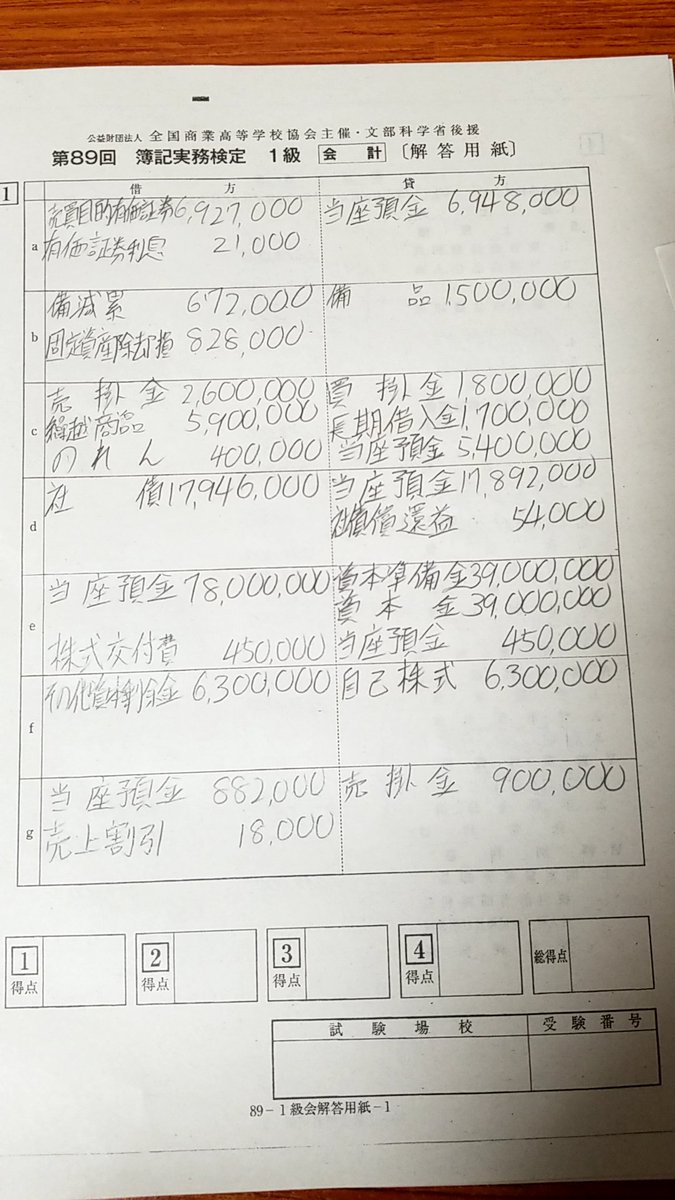 公益財団法人 全国商業高等学校協会主催・文部科学省後援
第89回 簿記実務検定 1級 会計 〔解答用紙〕
1
借方 貸方
a
売買目的有価証券 6,927,000 当座預金 6,948,000
有価証券利息 21,000
b
備減累 672,000 備品 1,500,000
固定資産除却損 828,000
c
売掛金 2,600,000 買掛金 1,800,000
繰越商品 5,900,000 長期借入金 1,700,000
のれん 400,000 当座預金 5,400,000
d
社債 17,946,000 当座預金 17,892,000
社債償還益 54,000
e
当座預金 78,000,000 資本準備金 39,000,000
資本金 39,000,000
株式交付費 450,000 当座預金 450,000
f
その他資本剰余金 6,300,000 自己株式 6,300,000
g
当座預金 882,000 売掛金 900,000
売上割引 18,000
1 得点
2 得点
3 得点
4 得点
総得点
試験場校 受験番号
89-1級会解答用紙-1